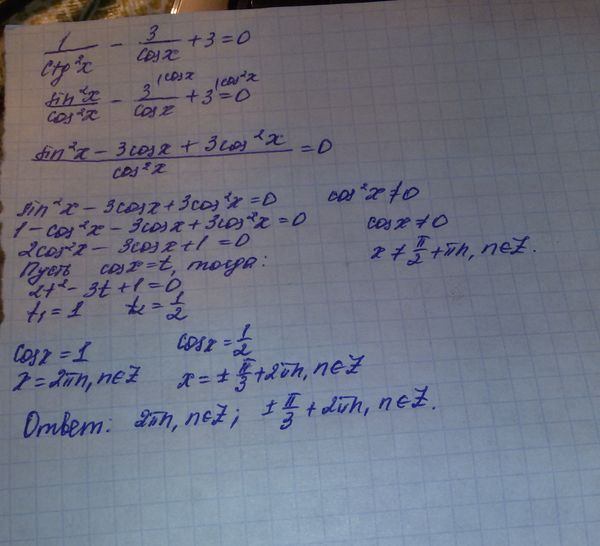 1/ctg²x - 3/cosx + 3 = 0
sin²x/cos²x - 3/cosx |cosx + 3 |cos²x = 0
(sin²x - 3cosx + 3cos²x)/cos²x = 0
sin²x - 3cosx + 3cos²x = 0 cos²x ≠ 0
1 - cos²x - 3cosx + 3cos²x = 0 cosx ≠ 0
2cos²x - 3cosx + 1 = 0 x ≠ π/2 + πn, n∈Z.
Пусть cosx = t, тогда:
2t² - 3t + 1 = 0
t₁ = 1 t₂ = 1/2
cosx = 1 cosx = 1/2
x = 2πn, n∈Z x = ± π/3 + 2πn, n∈Z
Ответ: 2πn, n∈Z; ± π/3 + 2πn, n∈Z.